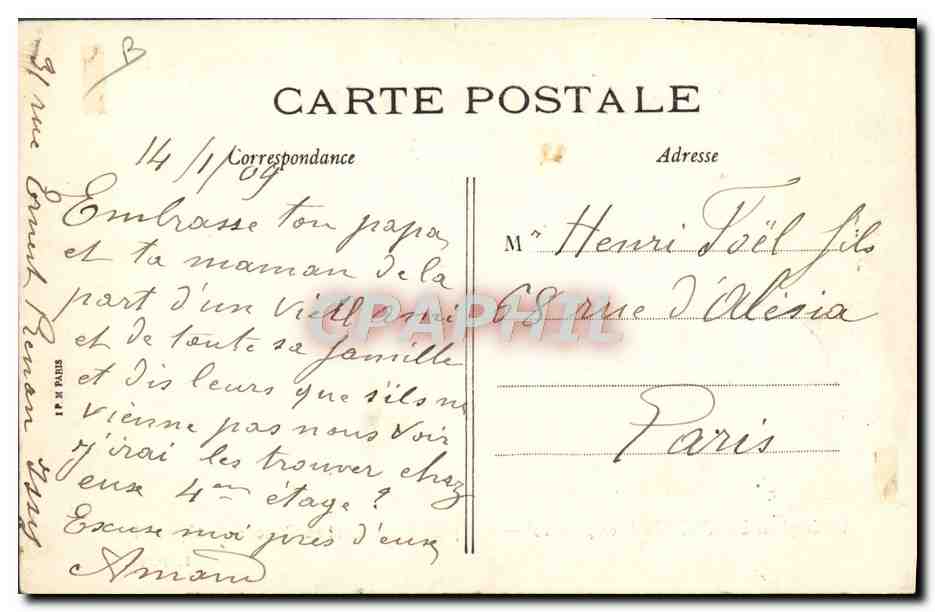 B
CARTE POSTALE
Correspondance
Adresse
14/1/09
Embrasse ton papa
et ta maman de la
part d'un Vieil ami
et de toute sa famille
et dis leurs que s'ils ne
vienne pas nous voir
j'irai les trouver chez
euse 4em étage ?
Excuse moi près d'euse
Amand
31 rue Ernest Renan Issy
I P M PARIS
Mr Henri Foël fils
68 rue d'Alésia
Paris
CPAPHIL